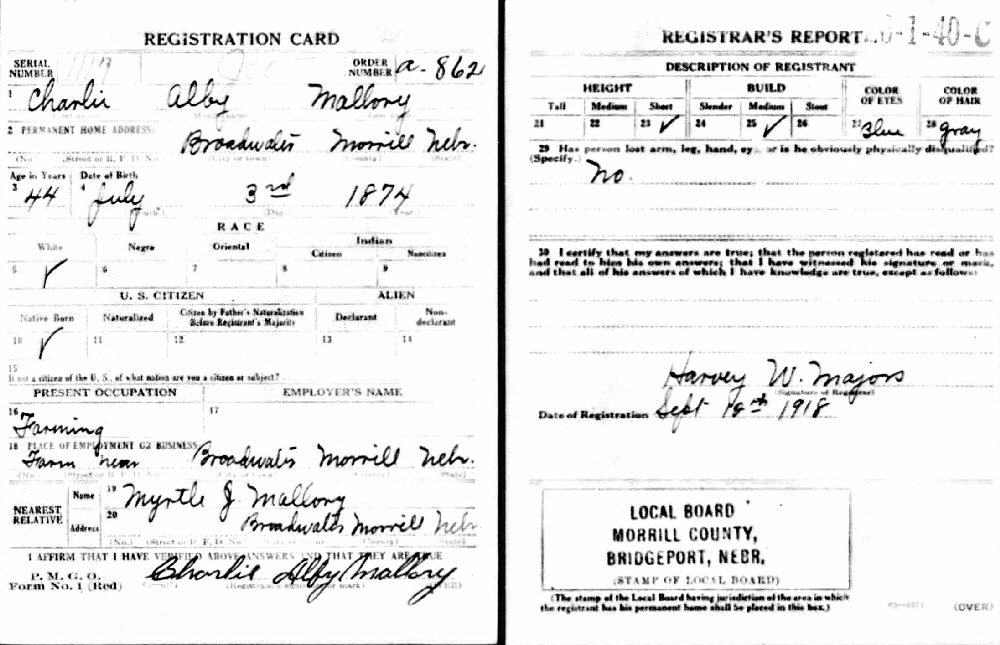 REGISTRATION CARD
SERIAL NUMBER
ORDER NUMBER a-862
1 Charlie Alby Mallory
2 PERMANENT HOME ADDRESS:
Broadwater Morrill Nebr.
(No.) (Street or R. F. D. No.) (City or town) (County) (State)
Age in Years Date of Birth
3 44 4 July 3rd 1874
(Month.) (Day.) (Year.)
RACE
White Negro Oriental Indian
Citizen Noncitizen
5 ✓ 6 7 8 9
U. S. CITIZEN ALIEN
Native Born Naturalized Citizen by Father's Naturalization Before Registrant's Majority Declarant Non-declarant
10 ✓ 11 12 13 14
15
If not a citizen of the U. S., of what nation are you a citizen or subject?
PRESENT OCCUPATION EMPLOYER'S NAME
16 Farming 17
18 PLACE OF EMPLOYMENT OR BUSINESS:
Farm near Broadwater Morrill Nebr.
(No.) (Street or R. F. D. No.) (City or town) (County) (State)
NEAREST RELATIVE
Name 19 Myrtle J Mallory
Address 20 Broadwater Morrill Nebr
(No.) (Street or R. F. D. No.) (City or town) (County) (State)
I AFFIRM THAT I HAVE VERIFIED ABOVE ANSWERS AND THAT THEY ARE TRUE
P. M. G. O.
Form No. 1 (Red)
Charlie Alby Mallory
(Registrant's signature or mark) (OVER)
REGISTRAR'S REPORT 26-1-40-C
DESCRIPTION OF REGISTRANT
HEIGHT BUILD COLOR OF EYES COLOR OF HAIR
Tall Medium Short Slender Medium Stout
21 22 23 ✓ 24 25 ✓ 26 27 Blue 28 gray
29 Has person lost arm, leg, hand, eye, or is he obviously physically disqualified?
(Specify.) No.
30 I certify that my answers are true; that the person registered has read or has
had read to him his own answers; that I have witnessed his signature or mark,
and that all of his answers of which I have knowledge are true, except as follows:
Harvey W. Majors
(Signature of Registrar)
Date of Registration Sept 12th 1918
LOCAL BOARD
MORRILL COUNTY,
BRIDGEPORT, NEBR,
(STAMP OF LOCAL BOARD)
(The stamp of the Local Board having jurisdiction of the area in which
the registrant has his permanent home shall be placed in this box.)
(OVER)